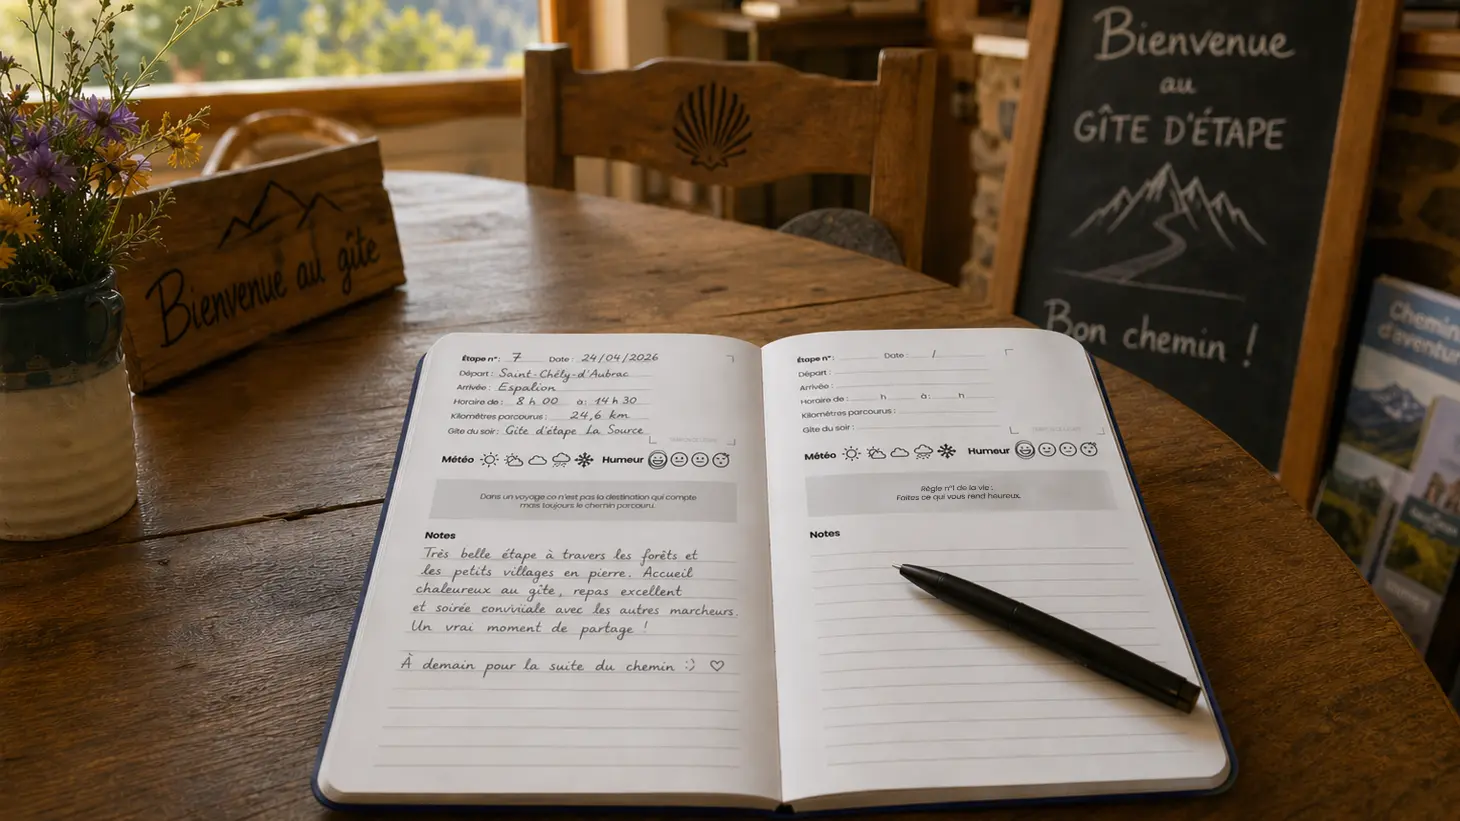 Bienvenue
au
GÎTE D'ÉTAPE
Bon chemin !
Bienvenue au gîte
Chemin
d'aventur
Étape n° : 7 Date : 24/04/2026
Départ : Saint-Chély-d'Aubrac
Arrivée : Espalion
Horaire de : 8 h 00 à : 14 h 30
Kilomètres parcourus : 24,6 km
Gîte du soir : Gîte d'étape La Source
Météo Humeur
Dans un voyage ce n'est pas la destination qui compte
mais toujours le chemin parcouru.
Notes
Très belle étape à travers les forêts et
les petits villages en pierre. Accueil
chaleureux au gîte, repas excellent
et soirée conviviale avec les autres marcheurs.
Un vrai moment de partage !
À demain pour la suite du chemin :)
Étape n° : Date : /
Départ :
Arrivée :
Horaire de : h à : h
Kilomètres parcourus :
Gîte du soir :
Météo Humeur
Règle n°1 de la vie :
Faites ce qui vous rend heureux.
Notes